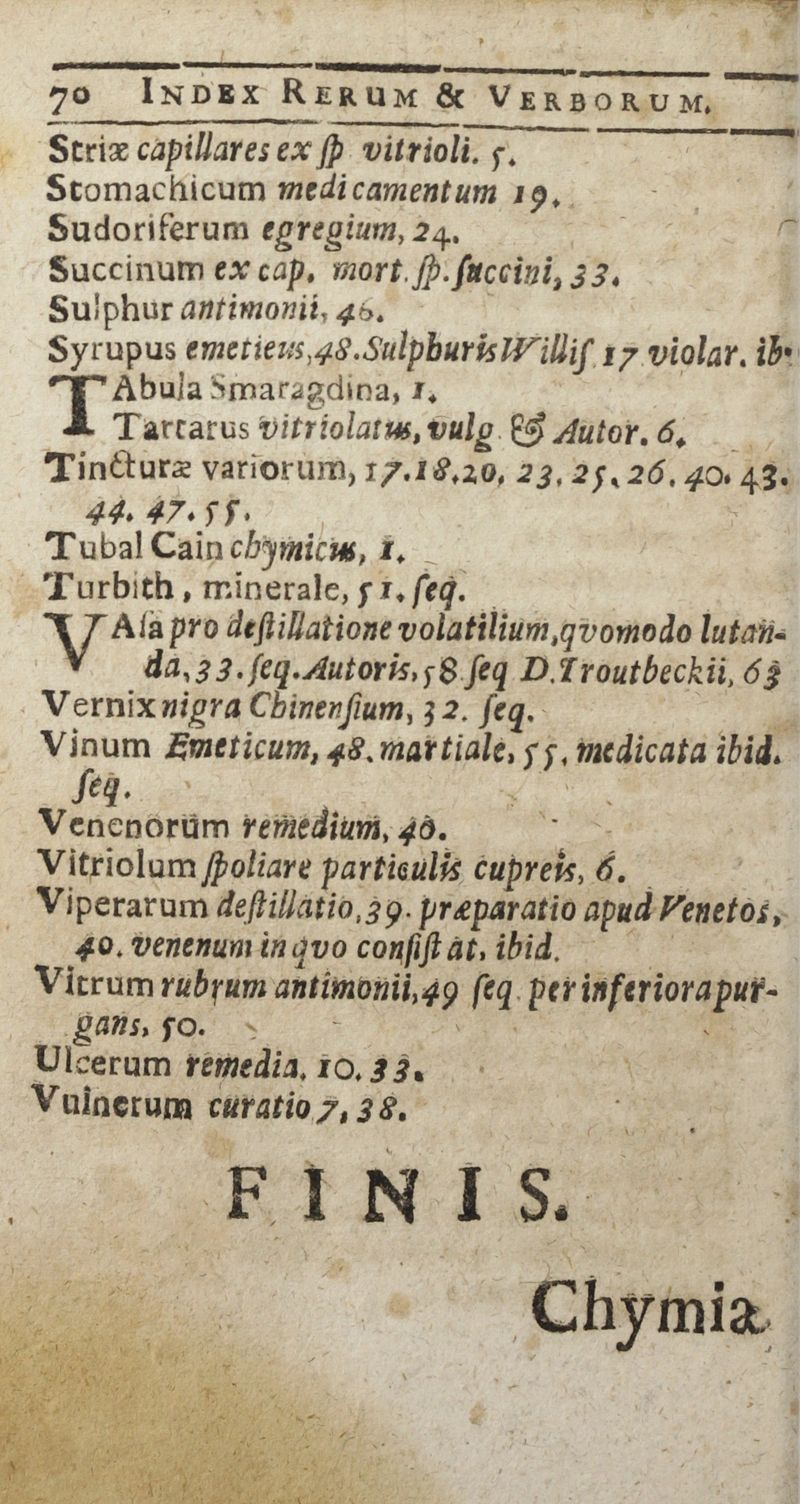 70 INDEX RERUM & VERBORUM.
Striæ capillares ex ſp vitrioli. 5.
Stomachicum medicamentum 19.
Sudoriferum egregium, 24.
Succinum ex cap. mort. ſp. ſuccini, 33.
Sulphur antimonii, 46.
Syrupus emeticus, 48. Sulphuris Williſ 17 violar. ib.
TAbula Smaragdina, 1.
Tartarus vitriolatus, vulg. & Autor. 6.
Tincturæ variorum, 17. 18. 20, 23. 25. 26. 40. 43.
44. 47. 55.
Tubal Cain chymicus, 1.
Turbith, minerale, 51. ſeq.
VAſa pro deſtillatione volatilium, qvomodo lutan-
da, 33. ſeq. Autoris, 58 ſeq D. Troutbeckii, 63
Vernix nigra Chinenſium, 32. ſeq.
Vinum Emeticum, 48. martiale, 55, medicata ibid.
ſeq.
Venenorum remedium, 40.
Vitriolum ſpoliare particulis cupreis, 6.
Viperarum deſtillatio, 39. præparatio apud Venetos,
40. venenum in qvo conſiſtat, ibid.
Vitrum rubrum antimonii, 49 ſeq. per inferiora pur-
gans, 50.
Ulcerum remedia, 10. 33.
Vulnerum curatio 7, 38.
FINIS.
Chymia